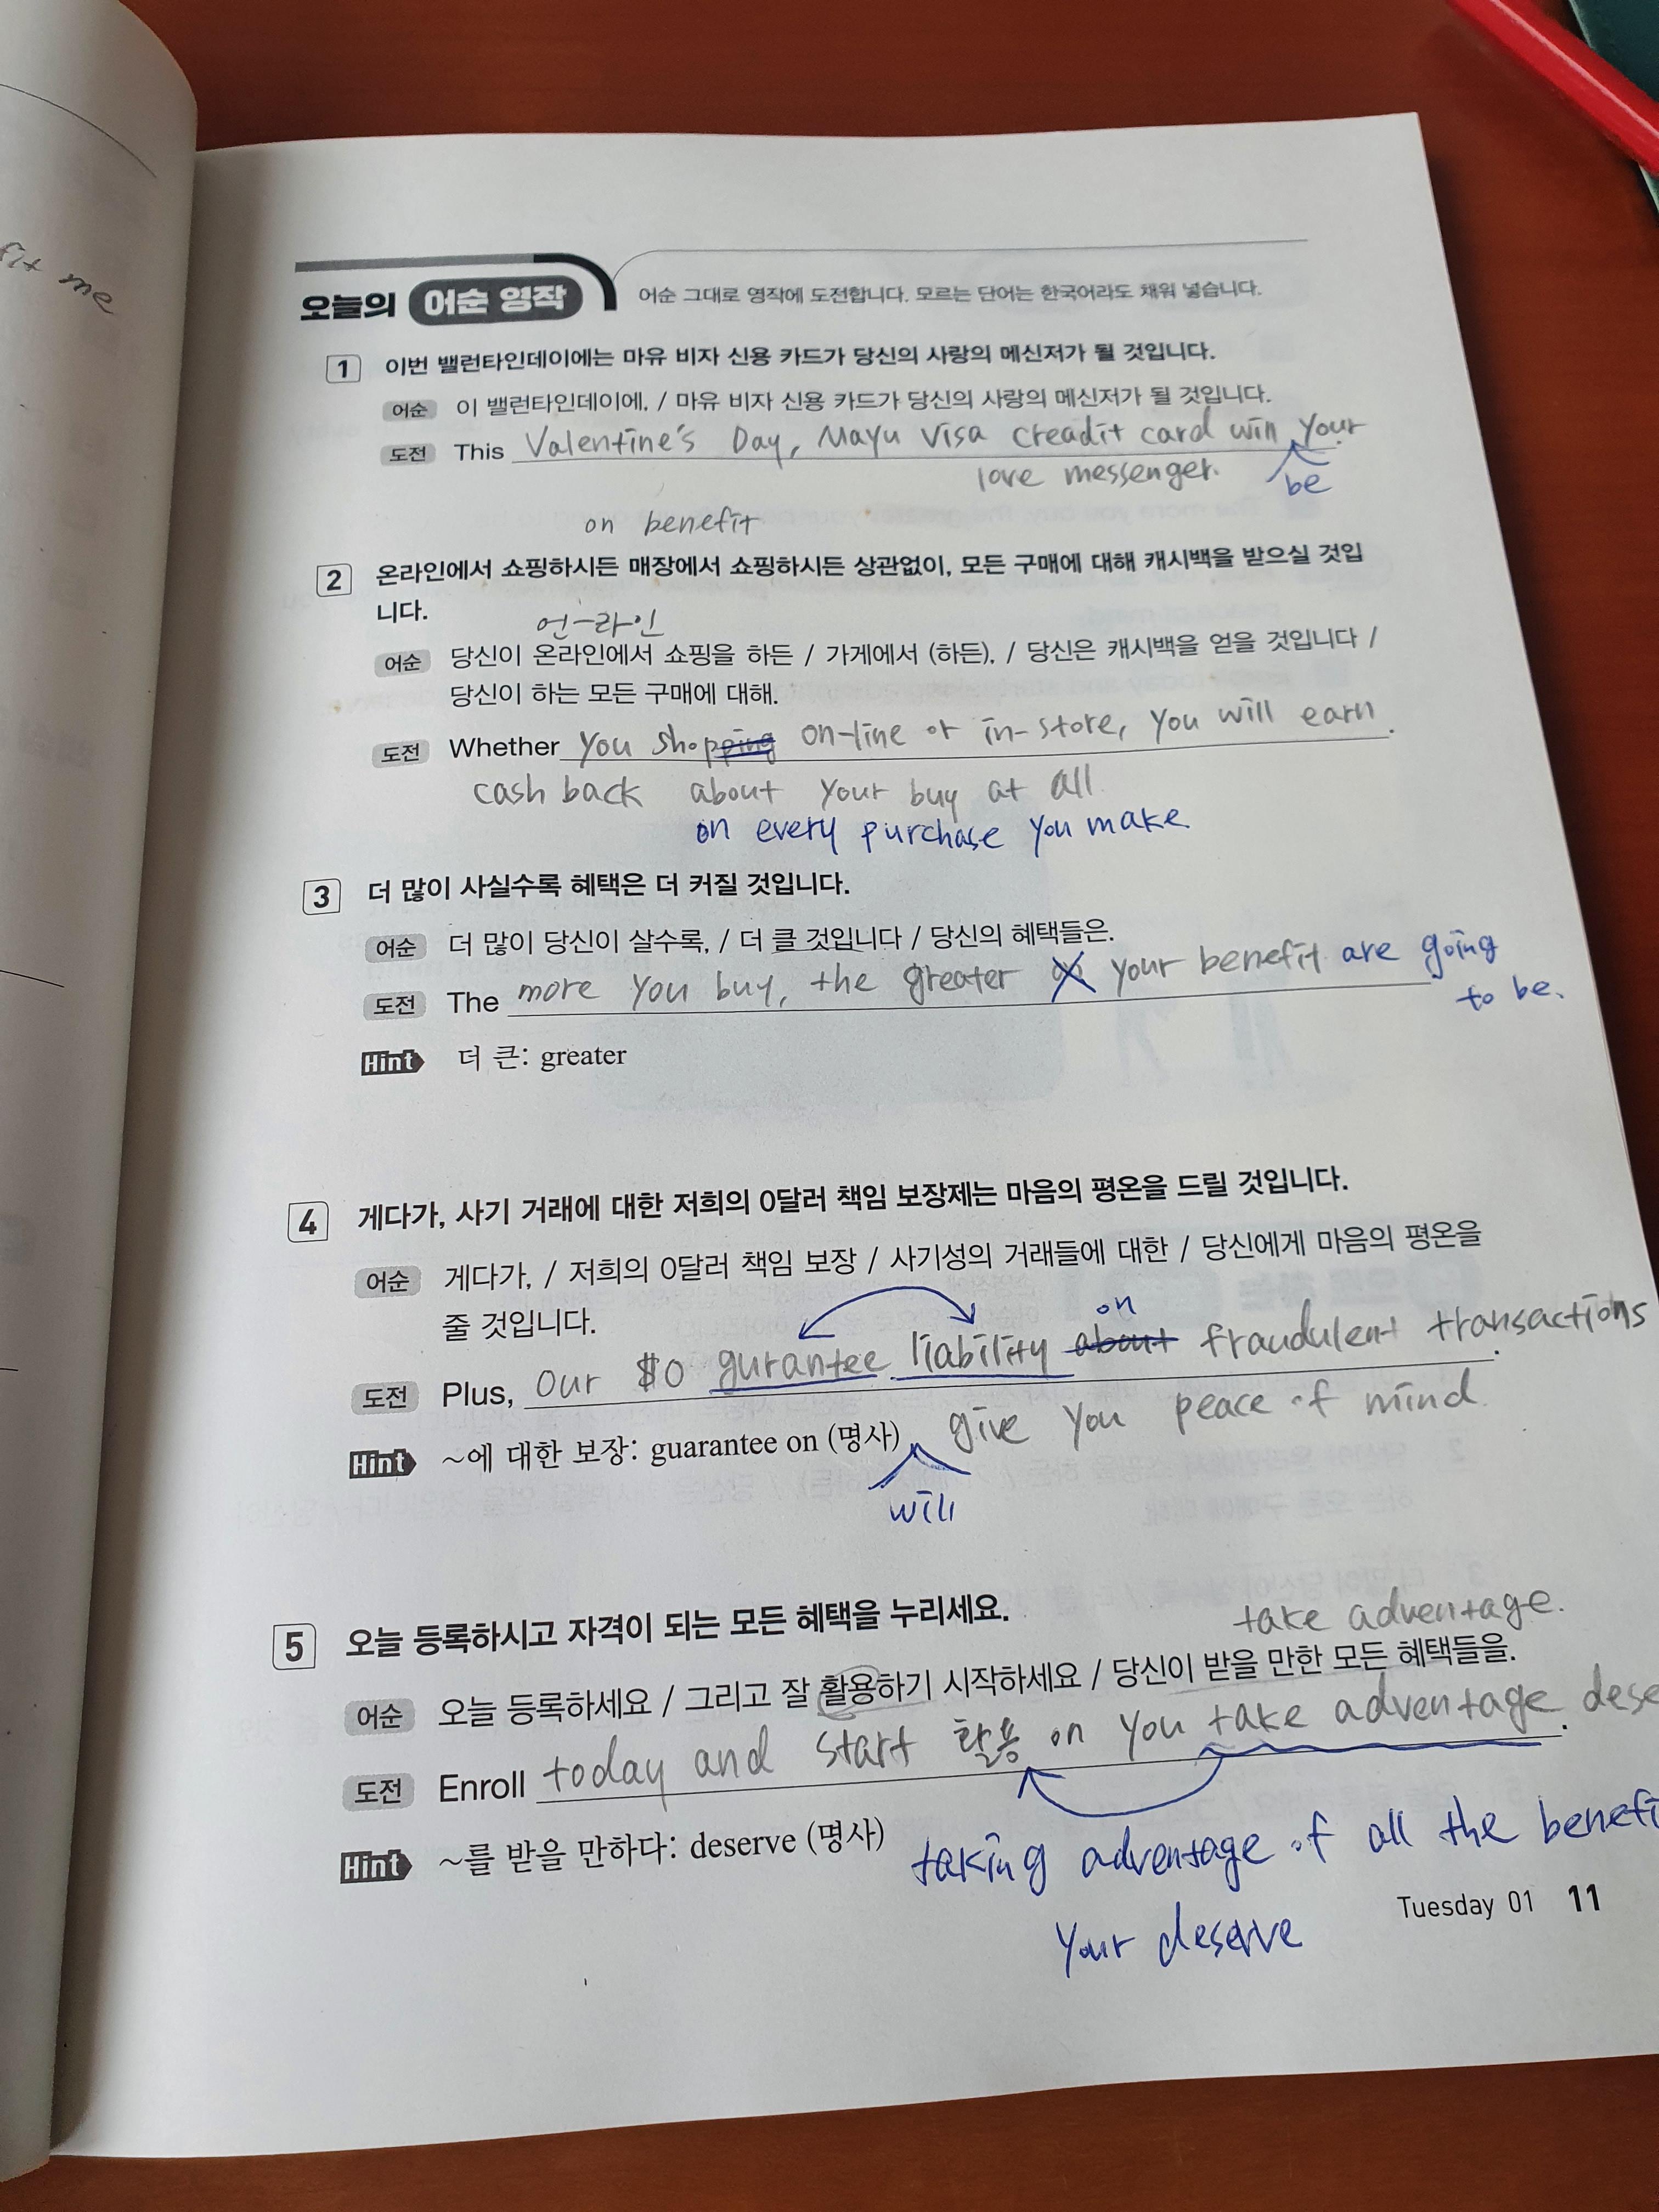 fit me
오늘의 어순 영작 어순 그대로 영작에 도전합니다. 모르는 단어는 한국어라도 채워 넣습니다.
1 이번 밸런타인데이에는 마유 비자 신용 카드가 당신의 사랑의 메신저가 될 것입니다.
어순 이 밸런타인데이에, / 마유 비자 신용 카드가 당신의 사랑의 메신저가 될 것입니다.
도전 This Valentine's Day, Mayu Visa creadit card will your
love messenger. be
on benefit
2 온라인에서 쇼핑하시든 매장에서 쇼핑하시든 상관없이, 모든 구매에 대해 캐시백을 받으실 것입
니다.
언-라인
어순 당신이 온라인에서 쇼핑을 하든 / 가게에서 (하든), / 당신은 캐시백을 얻을 것입니다 /
당신이 하는 모든 구매에 대해.
도전 Whether you shopping on-line or in-store, you will earn.
cash back about your buy at all
on every purchase you make
3 더 많이 사실수록 혜택은 더 커질 것입니다.
어순 더 많이 당신이 살수록, / 더 클 것입니다 / 당신의 혜택들은.
도전 The more you buy, the greater your benefit are going
to be.
Hint 더 큰: greater
4 게다가, 사기 거래에 대한 저희의 0달러 책임 보장제는 마음의 평온을 드릴 것입니다.
어순 게다가, / 저희의 0달러 책임 보장 / 사기성의 거래들에 대한 / 당신에게 마음의 평온을
줄 것입니다.
on
도전 Plus, our $0 gurantee liability about fraudulent transactions.
give you peace of mind
Hint ~에 대한 보장: guarantee on (명사)
will
5 오늘 등록하시고 자격이 되는 모든 혜택을 누리세요.
take adventage.
어순 오늘 등록하세요 / 그리고 잘 활용하기 시작하세요 / 당신이 받을 만한 모든 혜택들을.
도전 Enroll today and start 활용 on you take adventage. dese
Hint ~를 받을 만하다: deserve (명사)
taking adventage of all the benefi
your deserve
Tuesday 01 11